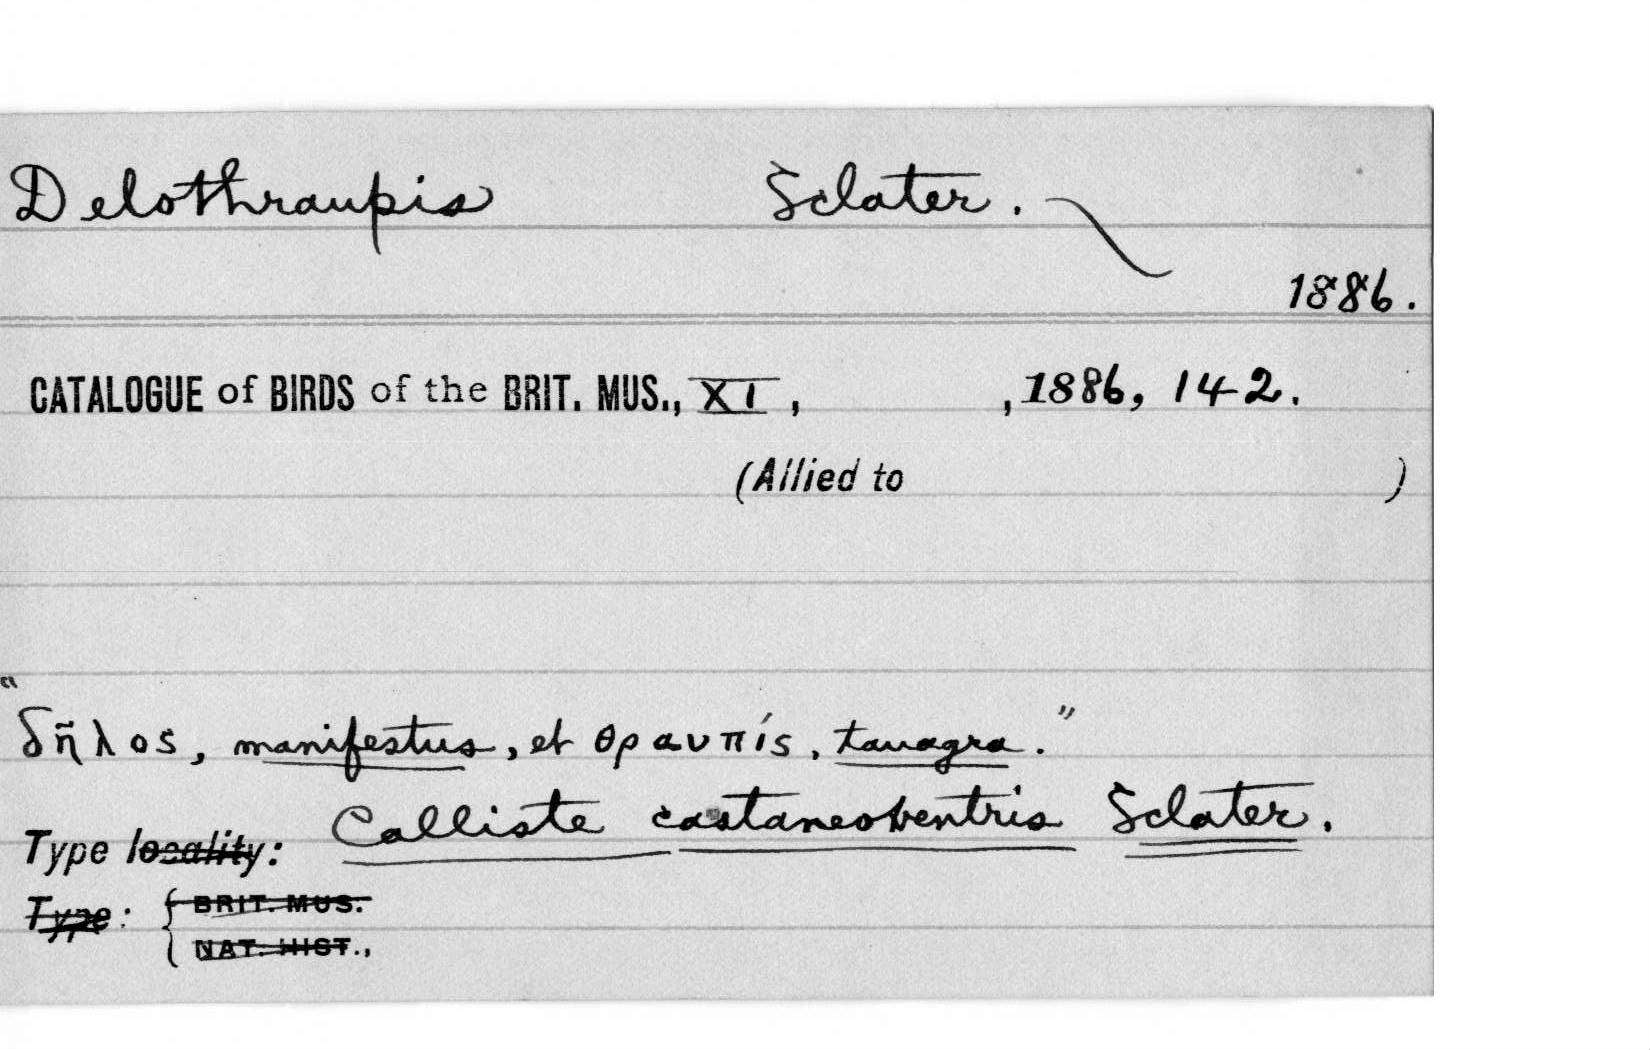 Delothraupis Sclater.
1886.
CATALOGUE of BIRDS of the BRIT. MUS., XI, , 1886, 142.
(Allied to )
"δῆλος, manifestus, et θραυπίς, tanagra."
Type locality: Calliste castaneoventris Sclater.
Type: { BRIT. MUS.
NAT. HIST.,